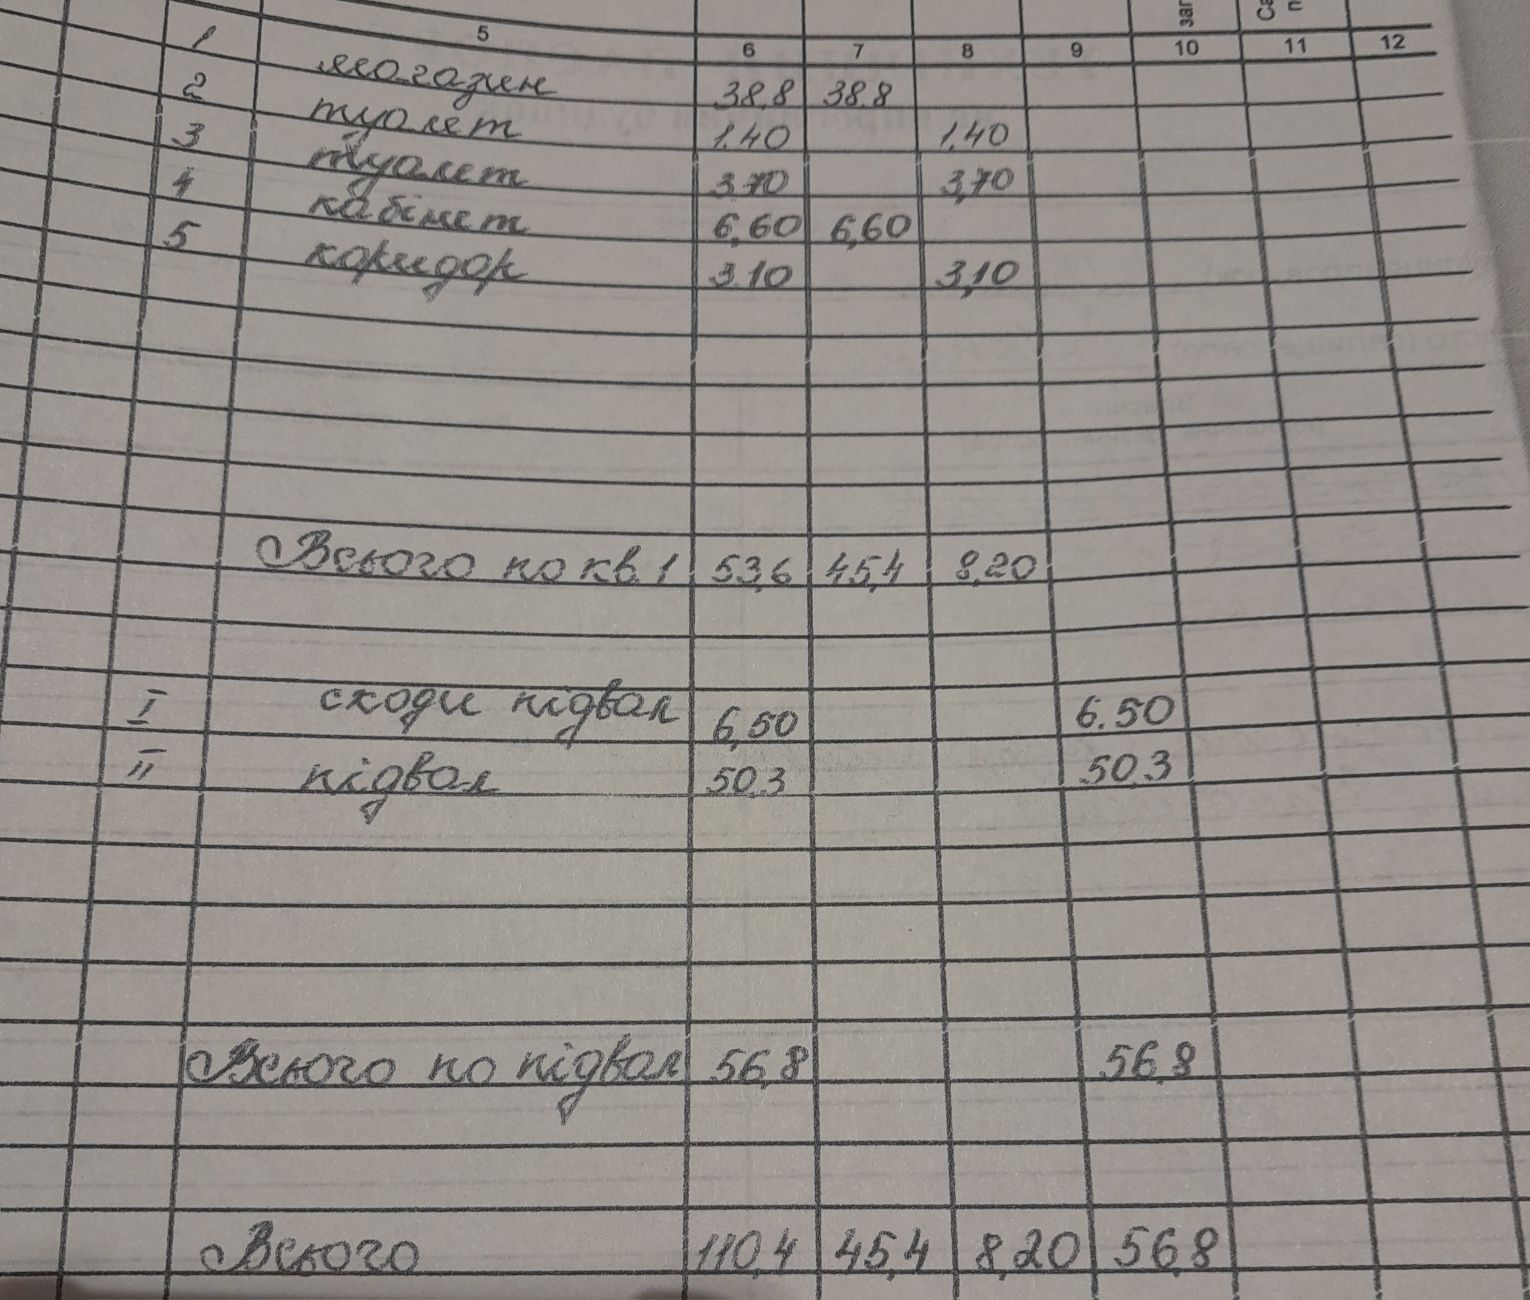 заг
Са
п
5 6 7 8 9 10 11 12
1 магазин 38,8 38,8
2 туалет 1.40 1,40
3 туалет 3.70 3,70
4 кабінет 6,60 6,60
5 коридор 3.10 3,10
Всього по кв. 1 53,6 45,4 8,20
I сходи підвал 6,50 6.50
II підвал 50,3 50,3
Всього по підвал 56,8 56,8
Всього 110,4 45,4 8,20 56,8